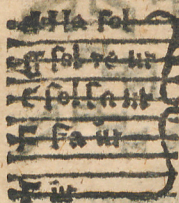 dd la sol
g sol re ut
c sol fa ut
F fa ut
Γ ut